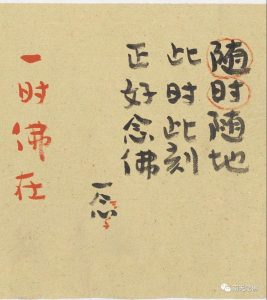 随时随地
此时此刻
正好念佛
一念
一时佛在